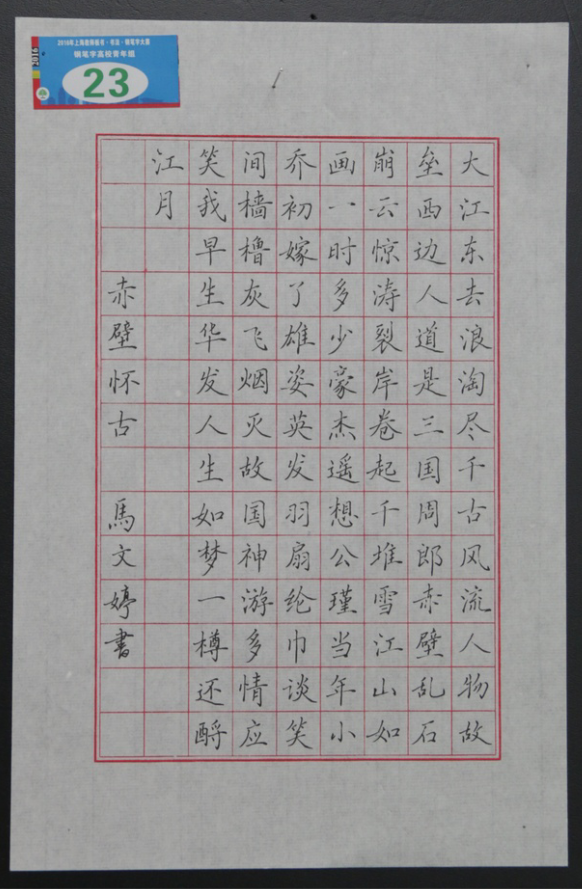 2016
2016年上海教师板书·书法·钢笔字大赛
钢笔字高校青年组
23
大江东去浪淘尽千古风流人物故
垒西边人道是三国周郎赤壁乱石
崩云惊涛裂岸卷起千堆雪江山如
画一时多少豪杰遥想公瑾当年小
乔初嫁了雄姿英发羽扇纶巾谈笑
间樯橹灰飞烟灭故国神游多情应
笑我早生华发人生如梦一樽还酹
江月
赤壁怀古 馬文婷書